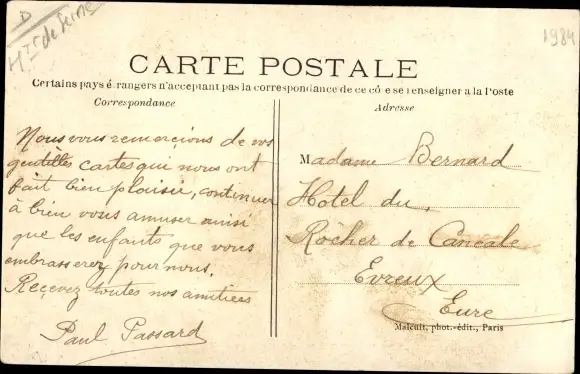 D
Hte de Seine
1984
CARTE POSTALE
Certains pays étrangers n'acceptant pas la correspondance de ce côté se renseigner à la Poste
Correspondance
Adresse
Nous vous remerçions de vos
gentilles cartes qui nous ont
fait bien plaisir, continuer
à bien vous amuser ainsi
que les enfants que vous
embrasserez pour nous.
Reçevez toutes nos amitiées
Paul Passard
Madame Bernard
Hotel du
Rocher de Cancale
Evreux
Eure
Malcuit, phot.-édit., Paris